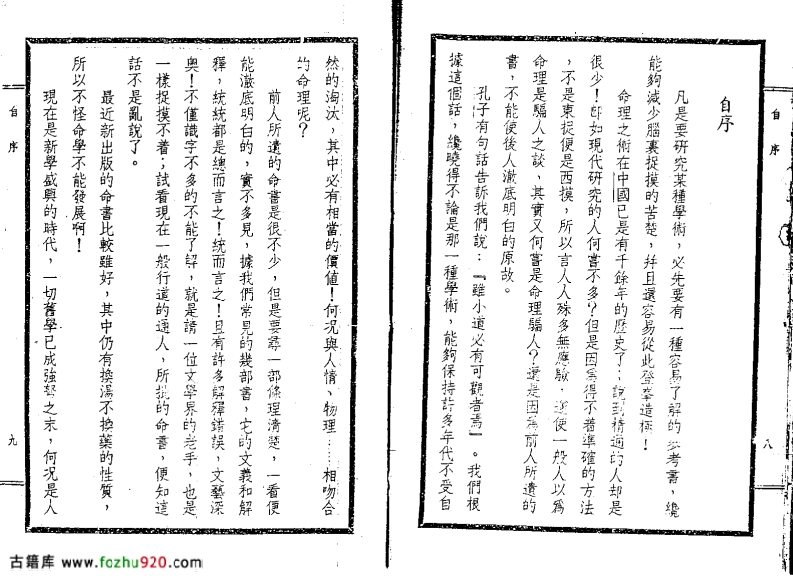 自序
八
自序
凡是要研究某種學術，必先要有一種容易了解的參考書，纔
能夠減少腦裏捉摸的苦楚，幷且還容易從此登峯造極！
命理之術在中國已是有千餘年的歷史了；說到精通的人却是
很少！即如現代研究的人何嘗不多？但是因爲得不着準確的方法
，不是東捉便是西摸，所以言人人殊多無應驗，遂使一般人以爲
命理是騙人之談，其實又何嘗是命理騙人？還是因爲前人所遺的
書，不能使後人澈底明白的原故。
孔子有句話告訴我們說：『雖小道必有可觀者焉』。我們根
據這個話，纔曉得不論是那一種學術，能夠保持許多年代不受自
然的淘汰，其中必有相當的價値！何况與人情、物理……相吻合
的命理呢？
前人所遺的命書是很不少，但是要尋一部條理淸楚，一看便
能澈底明白的，實不多見，據我們常見的幾部書，它的文義和解
釋，統統都是總而言之！統而言之！且有許多解釋錯誤，文藝深
奥！不僅識字不多的不能了解，就是請一位文學界的老手，也是
一樣捉摸不着；試看現在一般行道的通人，所批的命書，便知這
話不是亂說了。
最近新出版的命書比較雖好，其中仍有換湯不換藥的性質，
所以不怪命學不能發展啊！
現在是新學盛興的時代，一切舊學已成強弩之末，何况是人
自序
九
古籍库 www.fozhu920.com